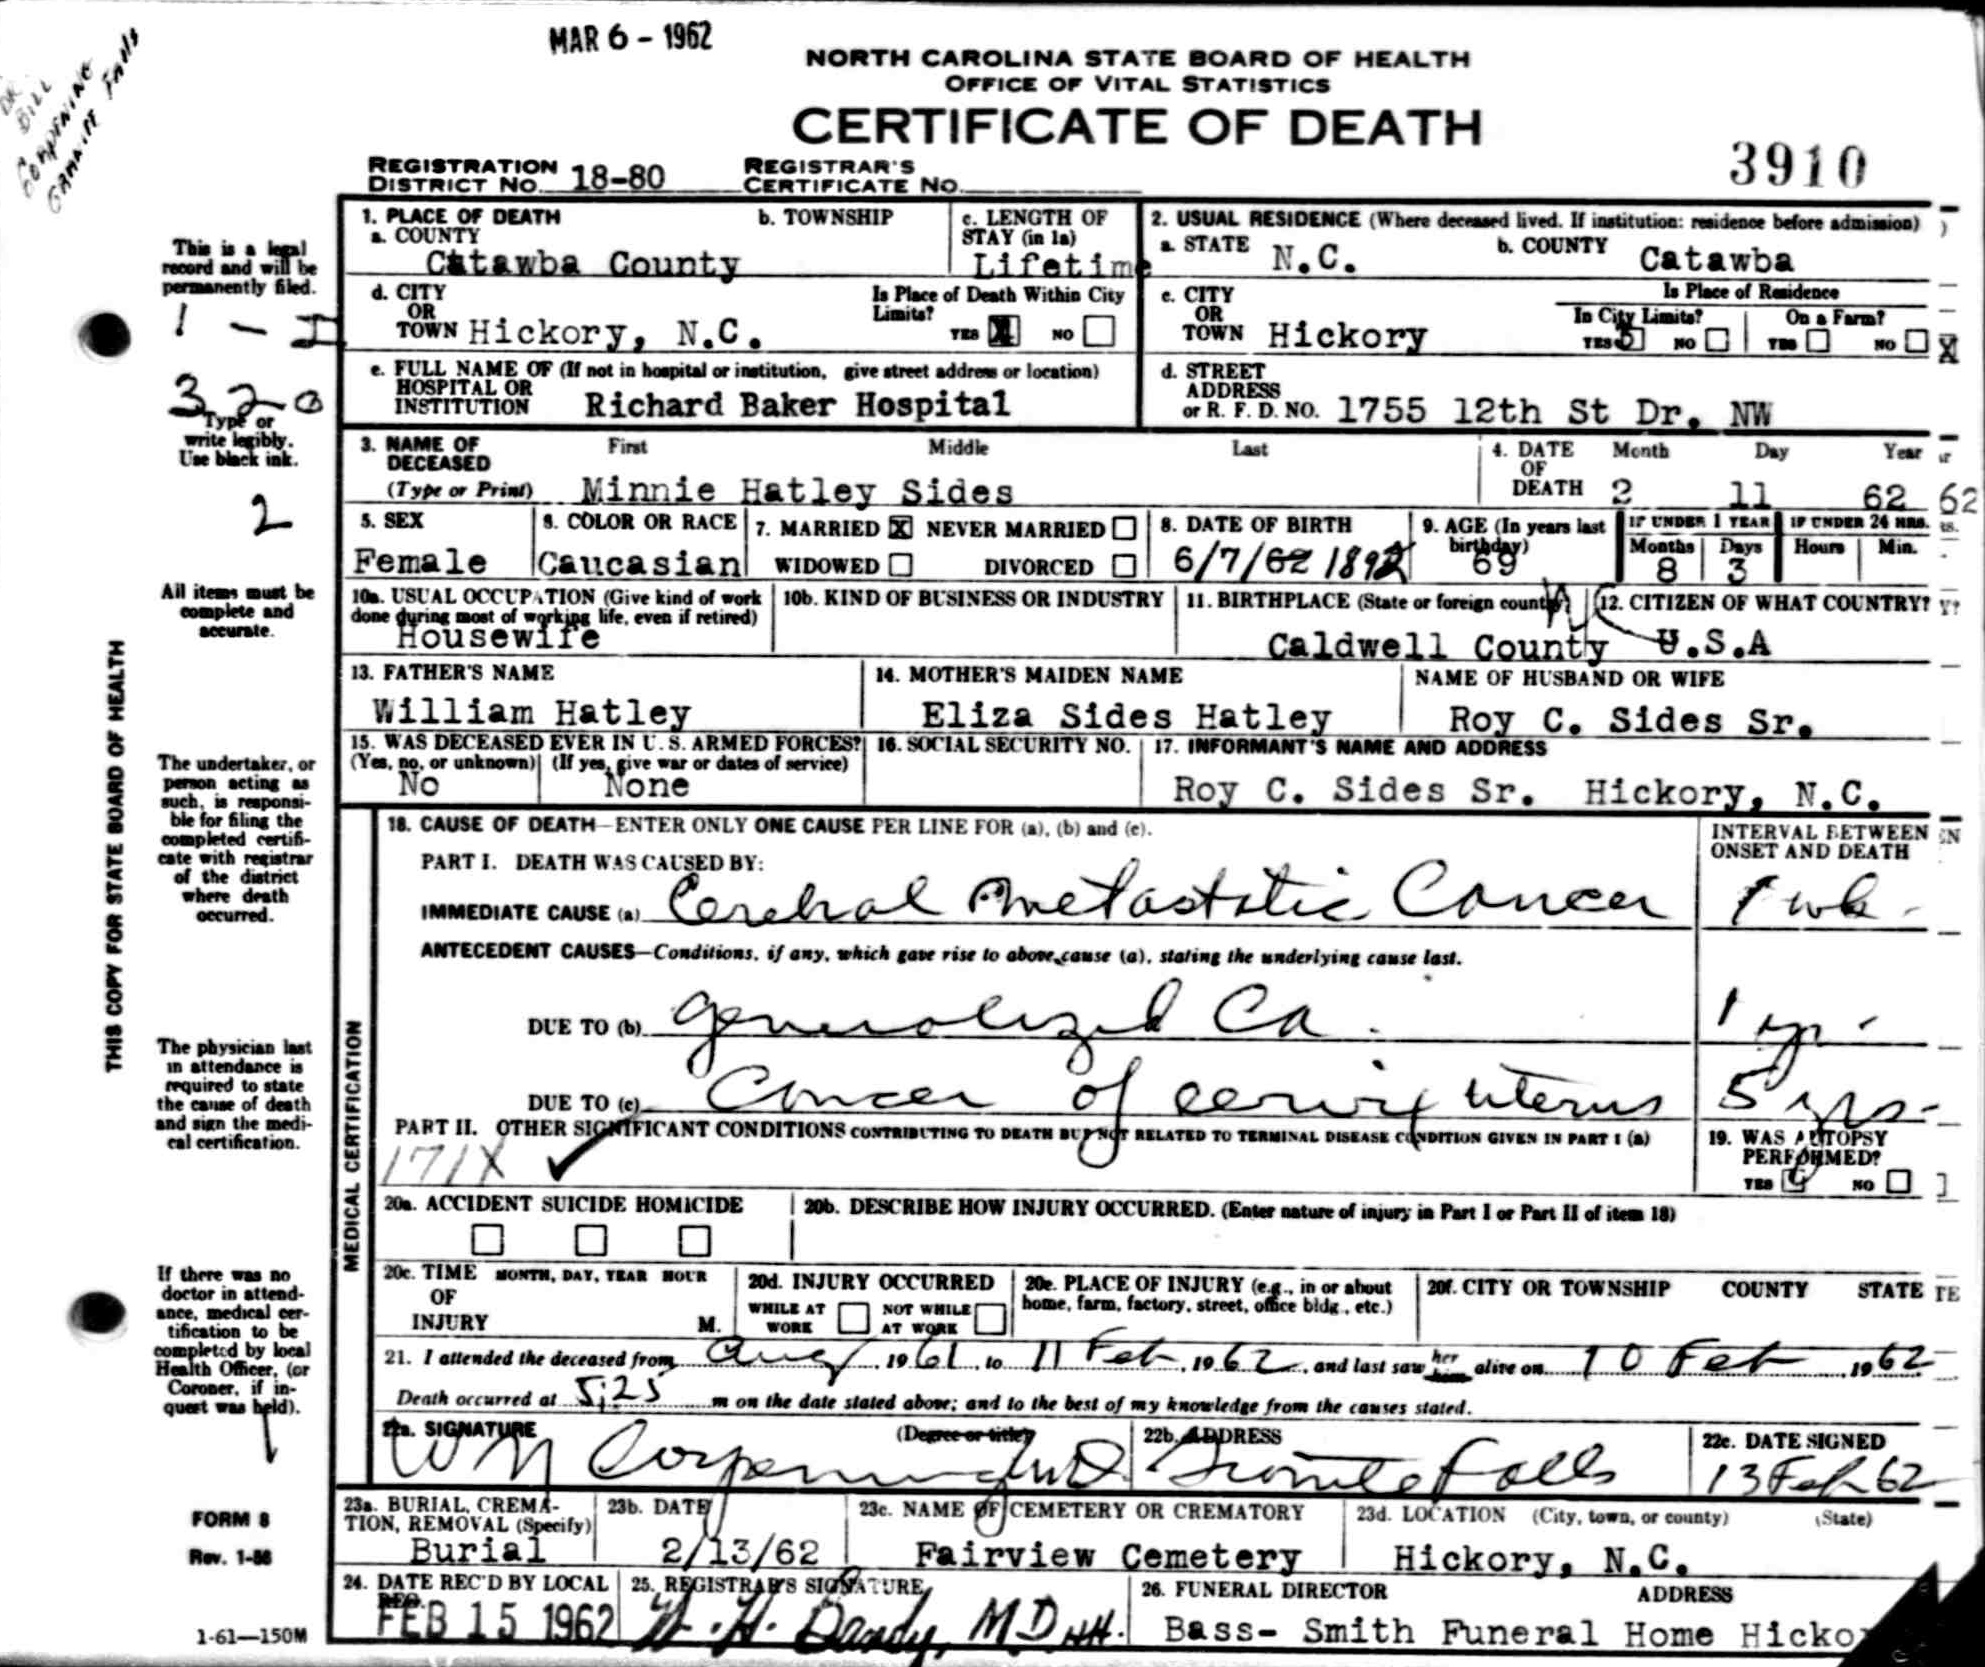 MAR 6 - 1962
DR. BILL CORPENING GRANITE Falls
NORTH CAROLINA STATE BOARD OF HEALTH
OFFICE OF VITAL STATISTICS
CERTIFICATE OF DEATH
3910
REGISTRATION DISTRICT NO. 18-80 REGISTRAR'S CERTIFICATE NO.
This is a legal record and will be permanently filed.
1. PLACE OF DEATH b. TOWNSHIP c. LENGTH OF STAY (in 1a)
a. COUNTY
Catawba County Lifetime
2. USUAL RESIDENCE (Where deceased lived. If institution: residence before admission)
a. STATE N.C. b. COUNTY Catawba
d. CITY OR TOWN Hickory, N.C. Is Place of Death Within City Limits? YES X NO
c. CITY OR TOWN Hickory Is Place of Residence In City Limits? YES NO On a Farm? YES NO X
1 - I
320
e. FULL NAME OF HOSPITAL OR INSTITUTION (If not in hospital or institution, give street address or location)
Richard Baker Hospital
d. STREET ADDRESS or R. F. D. NO. 1755 12th St Dr. NW
Type or write legibly. Use black ink.
2
3. NAME OF DECEASED (Type or Print) First Middle Last
Minnie Hatley Sides
4. DATE OF DEATH Month Day Year
2 11 62 62
5. SEX Female
6. COLOR OR RACE Caucasian
7. MARRIED X NEVER MARRIED WIDOWED DIVORCED
8. DATE OF BIRTH 6/7/62 1892
9. AGE (In years last birthday) 69
IF UNDER 1 YEAR Months 8 Days 3
IF UNDER 24 HRS. Hours Min.
All items must be complete and accurate.
10a. USUAL OCCUPATION (Give kind of work done during most of working life, even if retired)
Housewife
10b. KIND OF BUSINESS OR INDUSTRY
11. BIRTHPLACE (State or foreign country)
Caldwell County
12. CITIZEN OF WHAT COUNTRY?
U.S.A
13. FATHER'S NAME
William Hatley
14. MOTHER'S MAIDEN NAME
Eliza Sides Hatley
NAME OF HUSBAND OR WIFE
Roy C. Sides Sr.
15. WAS DECEASED EVER IN U.S. ARMED FORCES?
(Yes, no, or unknown) (If yes, give war or dates of service)
No None
16. SOCIAL SECURITY NO.
17. INFORMANT'S NAME AND ADDRESS
Roy C. Sides Sr. Hickory, N.C.
THIS COPY FOR STATE BOARD OF HEALTH
The undertaker, or person acting as such, is responsible for filing the completed certificate with registrar of the district where death occurred.
MEDICAL CERTIFICATION
18. CAUSE OF DEATH—ENTER ONLY ONE CAUSE PER LINE FOR (a), (b) and (c).
INTERVAL BETWEEN ONSET AND DEATH
PART I. DEATH WAS CAUSED BY:
IMMEDIATE CAUSE (a) Cerebral metastatic Cancer 1 wk.
ANTECEDENT CAUSES—Conditions, if any, which gave rise to above cause (a), stating the underlying cause last.
DUE TO (b) generalized Ca. 1 yr.
DUE TO (c) Cancer of cervix uterus 5 yrs
The physician last in attendance is required to state the cause of death and sign the medical certification.
PART II. OTHER SIGNIFICANT CONDITIONS CONTRIBUTING TO DEATH BUT NOT RELATED TO TERMINAL DISEASE CONDITION GIVEN IN PART I (a)
171X
19. WAS AUTOPSY PERFORMED?
YES NO
20a. ACCIDENT SUICIDE HOMICIDE
20b. DESCRIBE HOW INJURY OCCURRED. (Enter nature of injury in Part I or Part II of item 18)
20c. TIME OF INJURY MONTH, DAY, YEAR HOUR M.
20d. INJURY OCCURRED WHILE AT WORK NOT WHILE AT WORK
20e. PLACE OF INJURY (e.g., in or about home, farm, factory, street, office bldg., etc.)
20f. CITY OR TOWNSHIP COUNTY STATE
If there was no doctor in attendance, medical certification to be completed by local Health Officer, (or Coroner, if inquest was held).
21. I attended the deceased from Aug, 1961 to 11 Feb, 1962, and last saw her him alive on 10 Feb 1962
Death occurred at 5:25 m on the date stated above; and to the best of my knowledge from the causes stated.
22a. SIGNATURE (Degree or title)
W M Corpening MD
22b. ADDRESS
Granite Falls
22c. DATE SIGNED
13 Feb 62
23a. BURIAL, CREMATION, REMOVAL (Specify)
Burial
23b. DATE
2/13/62
23c. NAME OF CEMETERY OR CREMATORY
Fairview Cemetery
23d. LOCATION (City, town, or county) (State)
Hickory, N.C.
FORM 8
Rev. 1-56
24. DATE REC'D BY LOCAL REG.
FEB 15 1962
25. REGISTRAR'S SIGNATURE
26. FUNERAL DIRECTOR ADDRESS
Bass- Smith Funeral Home Hicko
1-61—150M